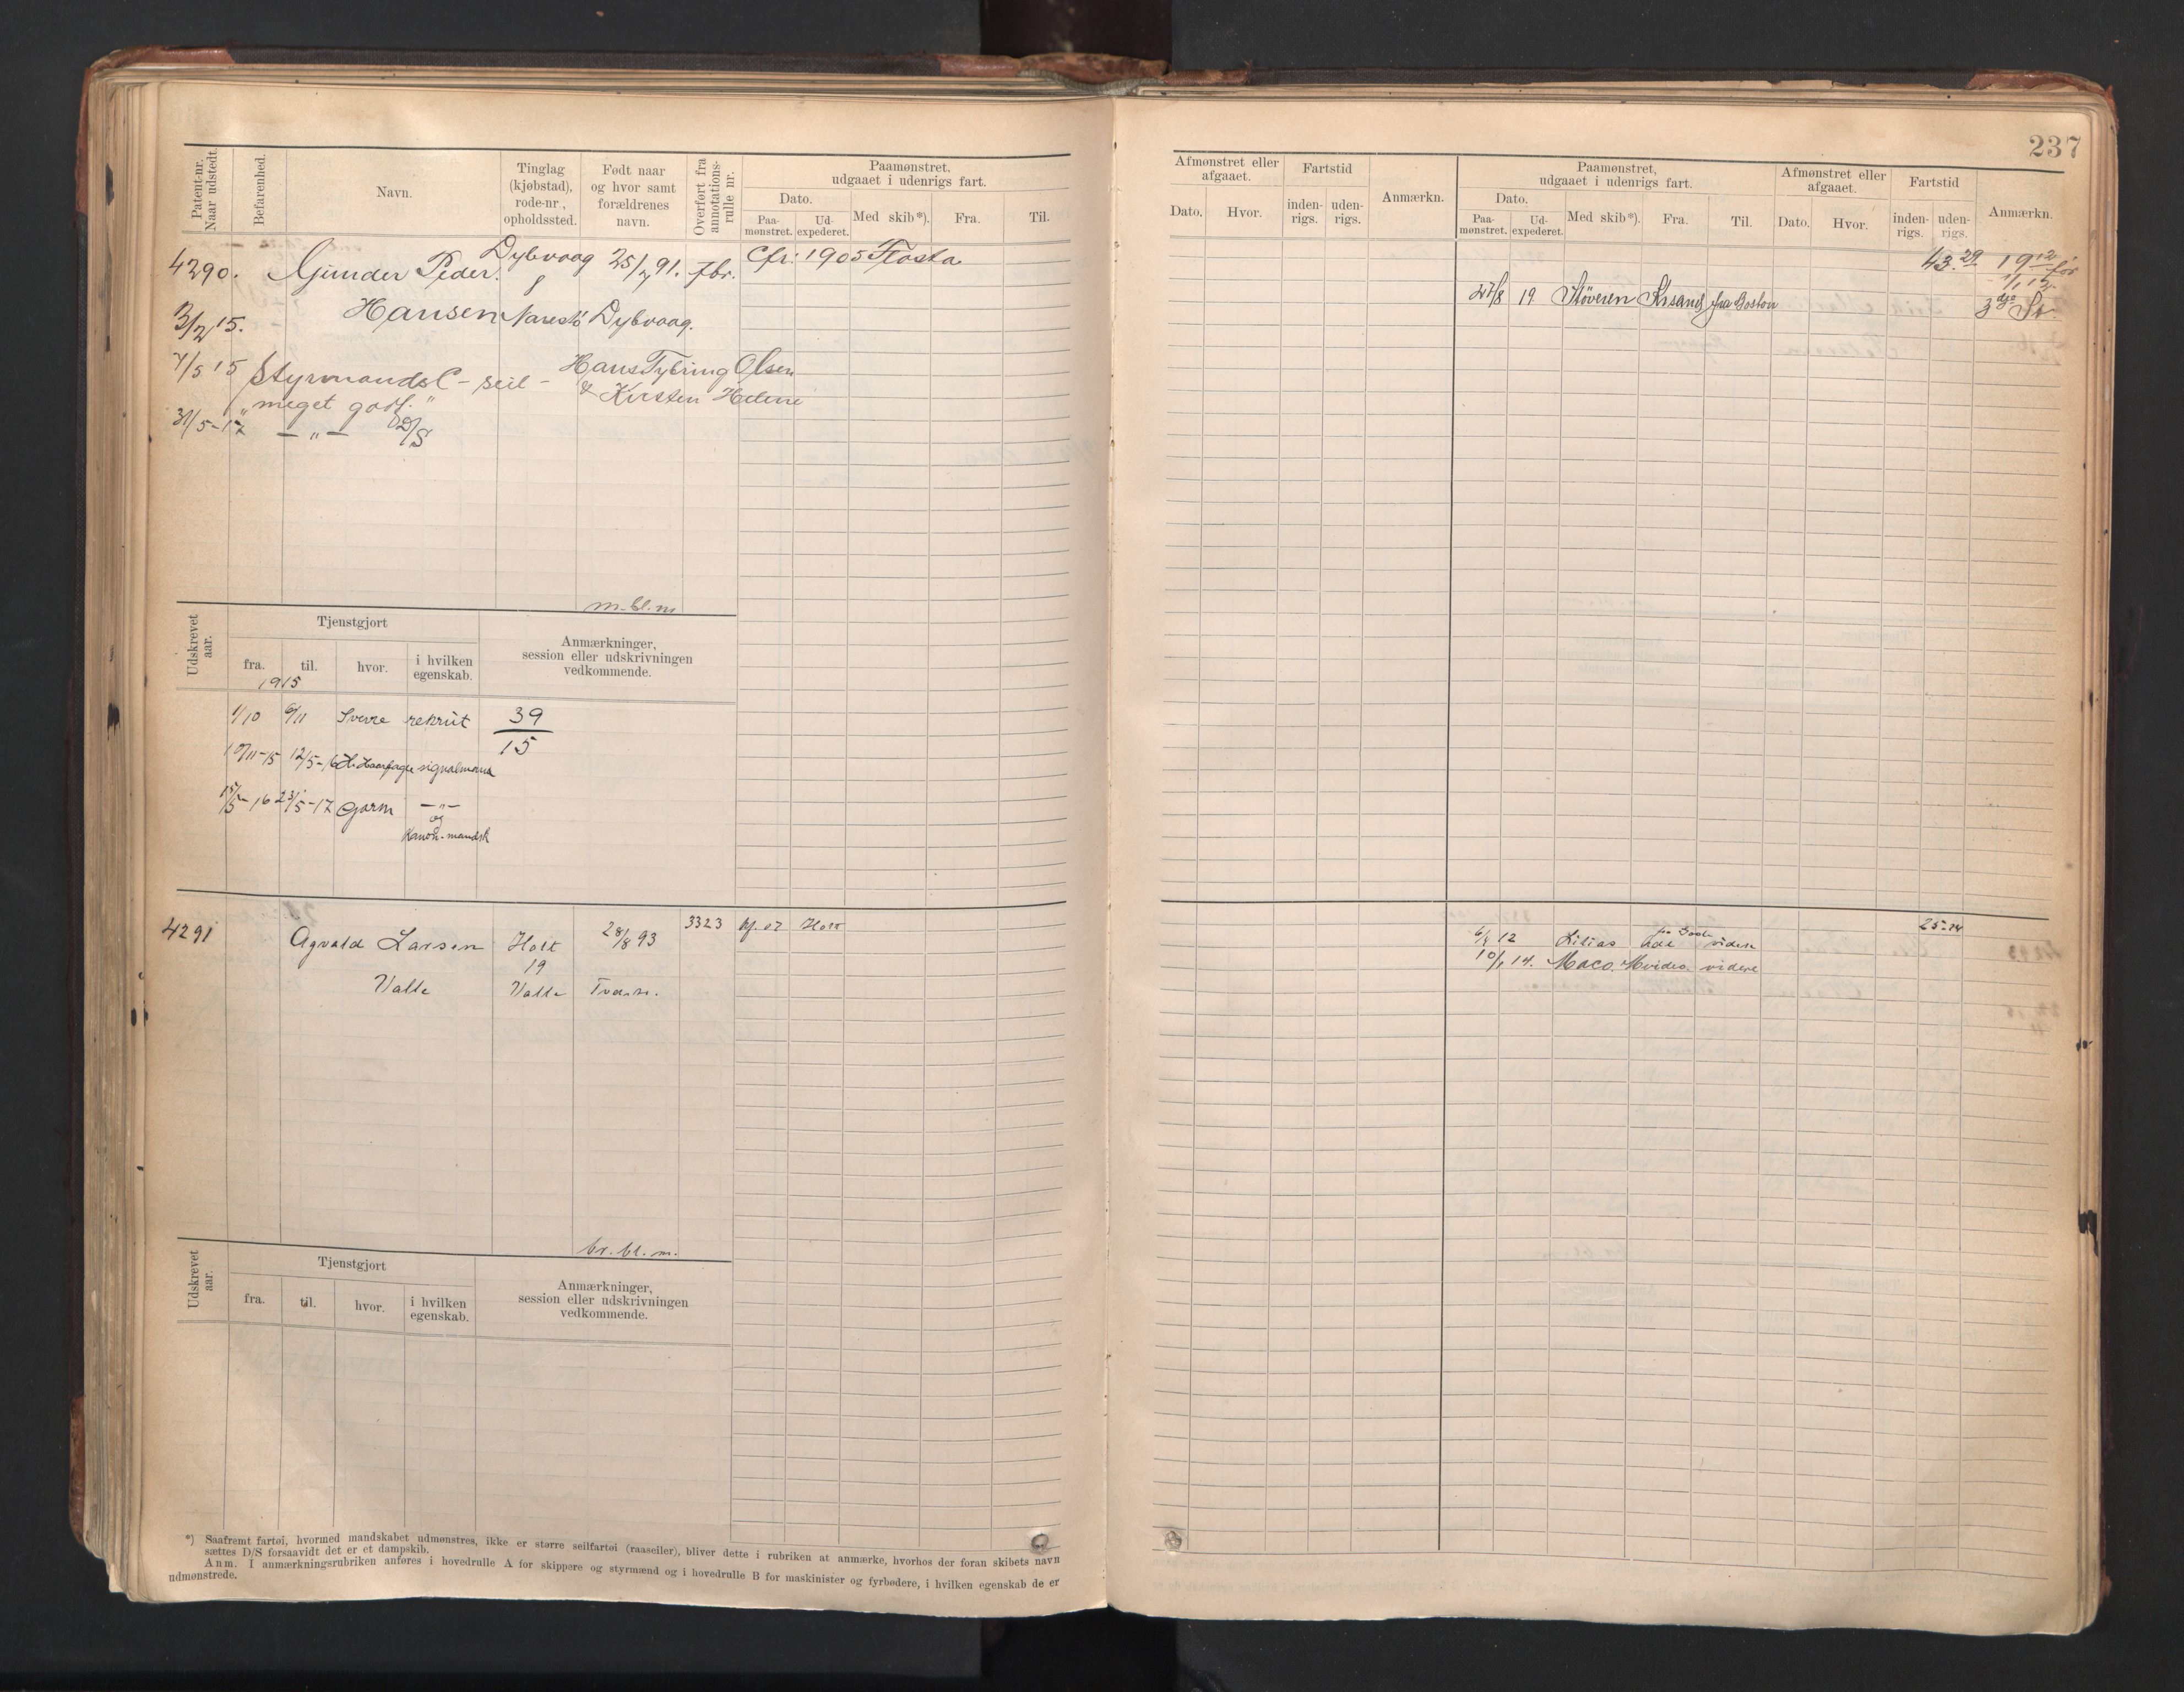 237
Patent-nr. Naar udstedt.
Befarenhed.
Navn.
Tinglag (kjøbstad), rode-nr., opholdssted.
Født naar og hvor samt forældrenes navn.
Overført fra annotations-rulle nr.
Paamønstret, udgaaet i udenrigs fart.
Dato.
Paa-mønstret.
Ud-expederet.
Med skib*).
Fra.
Til.
Afmønstret eller afgaaet.
Dato.
Hvor.
Fartstid
inden-rigs.
uden-rigs.
Anmærkn.
Paamønstret, udgaaet i udenrigs fart.
Dato.
Paa-mønstret.
Ud-expederet.
Med skib*).
Fra.
Til.
Afmønstret eller afgaaet.
Dato.
Hvor.
Fartstid
inden-rigs.
uden-rigs.
Anmærkn.
4290. Gunder Peder Dybvaag 25/7 91. fbr. Cfr: 1905 Flosta
Hansen Narestø Dybvaag.
3/2 15.
7/5 15 Styrmands C - seil - Hans Tybring Olsen
"meget godt." & Kirsten Helene
31/5-17 — " — D/S
43.29
27/8 19 Støveren Krsand fra Boston
m.bl.m
Udskrevet aar.
Tjenstgjort
fra.
til.
hvor.
i hvilken egenskab.
Anmærkninger, session eller udskrivningen vedkommende.
1915
1/10 6/11 Sverre rekrut 39/15
10/11-15 12/5-16 H. Haarfagre signalmand
15/5-16 23/5-17 Gorm — " —
og
Kanon.mandsk
4291 Agvald Larsen Holt 28/8 93 3323 kf. 07 Holt
19
Valle Valle Tvdstr.
25-14
6/4 12 Lilias Adl videre
10/1 14. Maco. Mvideo. videre
br. bl. m.
Udskrevet aar.
Tjenstgjort
fra.
til.
hvor.
i hvilken egenskab.
Anmærkninger, session eller udskrivningen vedkommende.
*) Saafremt fartøi, hvormed mandskabet udmønstres, ikke er større seilfartøi (raaseiler), bliver dette i rubriken at anmærke, hvorhos der foran skibets navn
sættes D/S forsaavidt det er et dampskib.
Anm. I anmærkningsrubriken anføres i hovedrulle A for skippere og styrmænd og i hovedrulle B for maskinister og fyrbødere, i hvilken egenskab de er
udmønstrede.